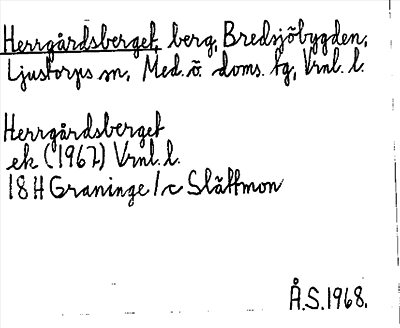 Herrgårdsberget, berg, Bredsjöbygden,
Ljustorps sn, Med. ö. doms. tg, Vrnl. l.
Herrgårdsberget
ek (1967) Vrnl. l.
18 H Graninge /c Slättmon
Å.S.1968.